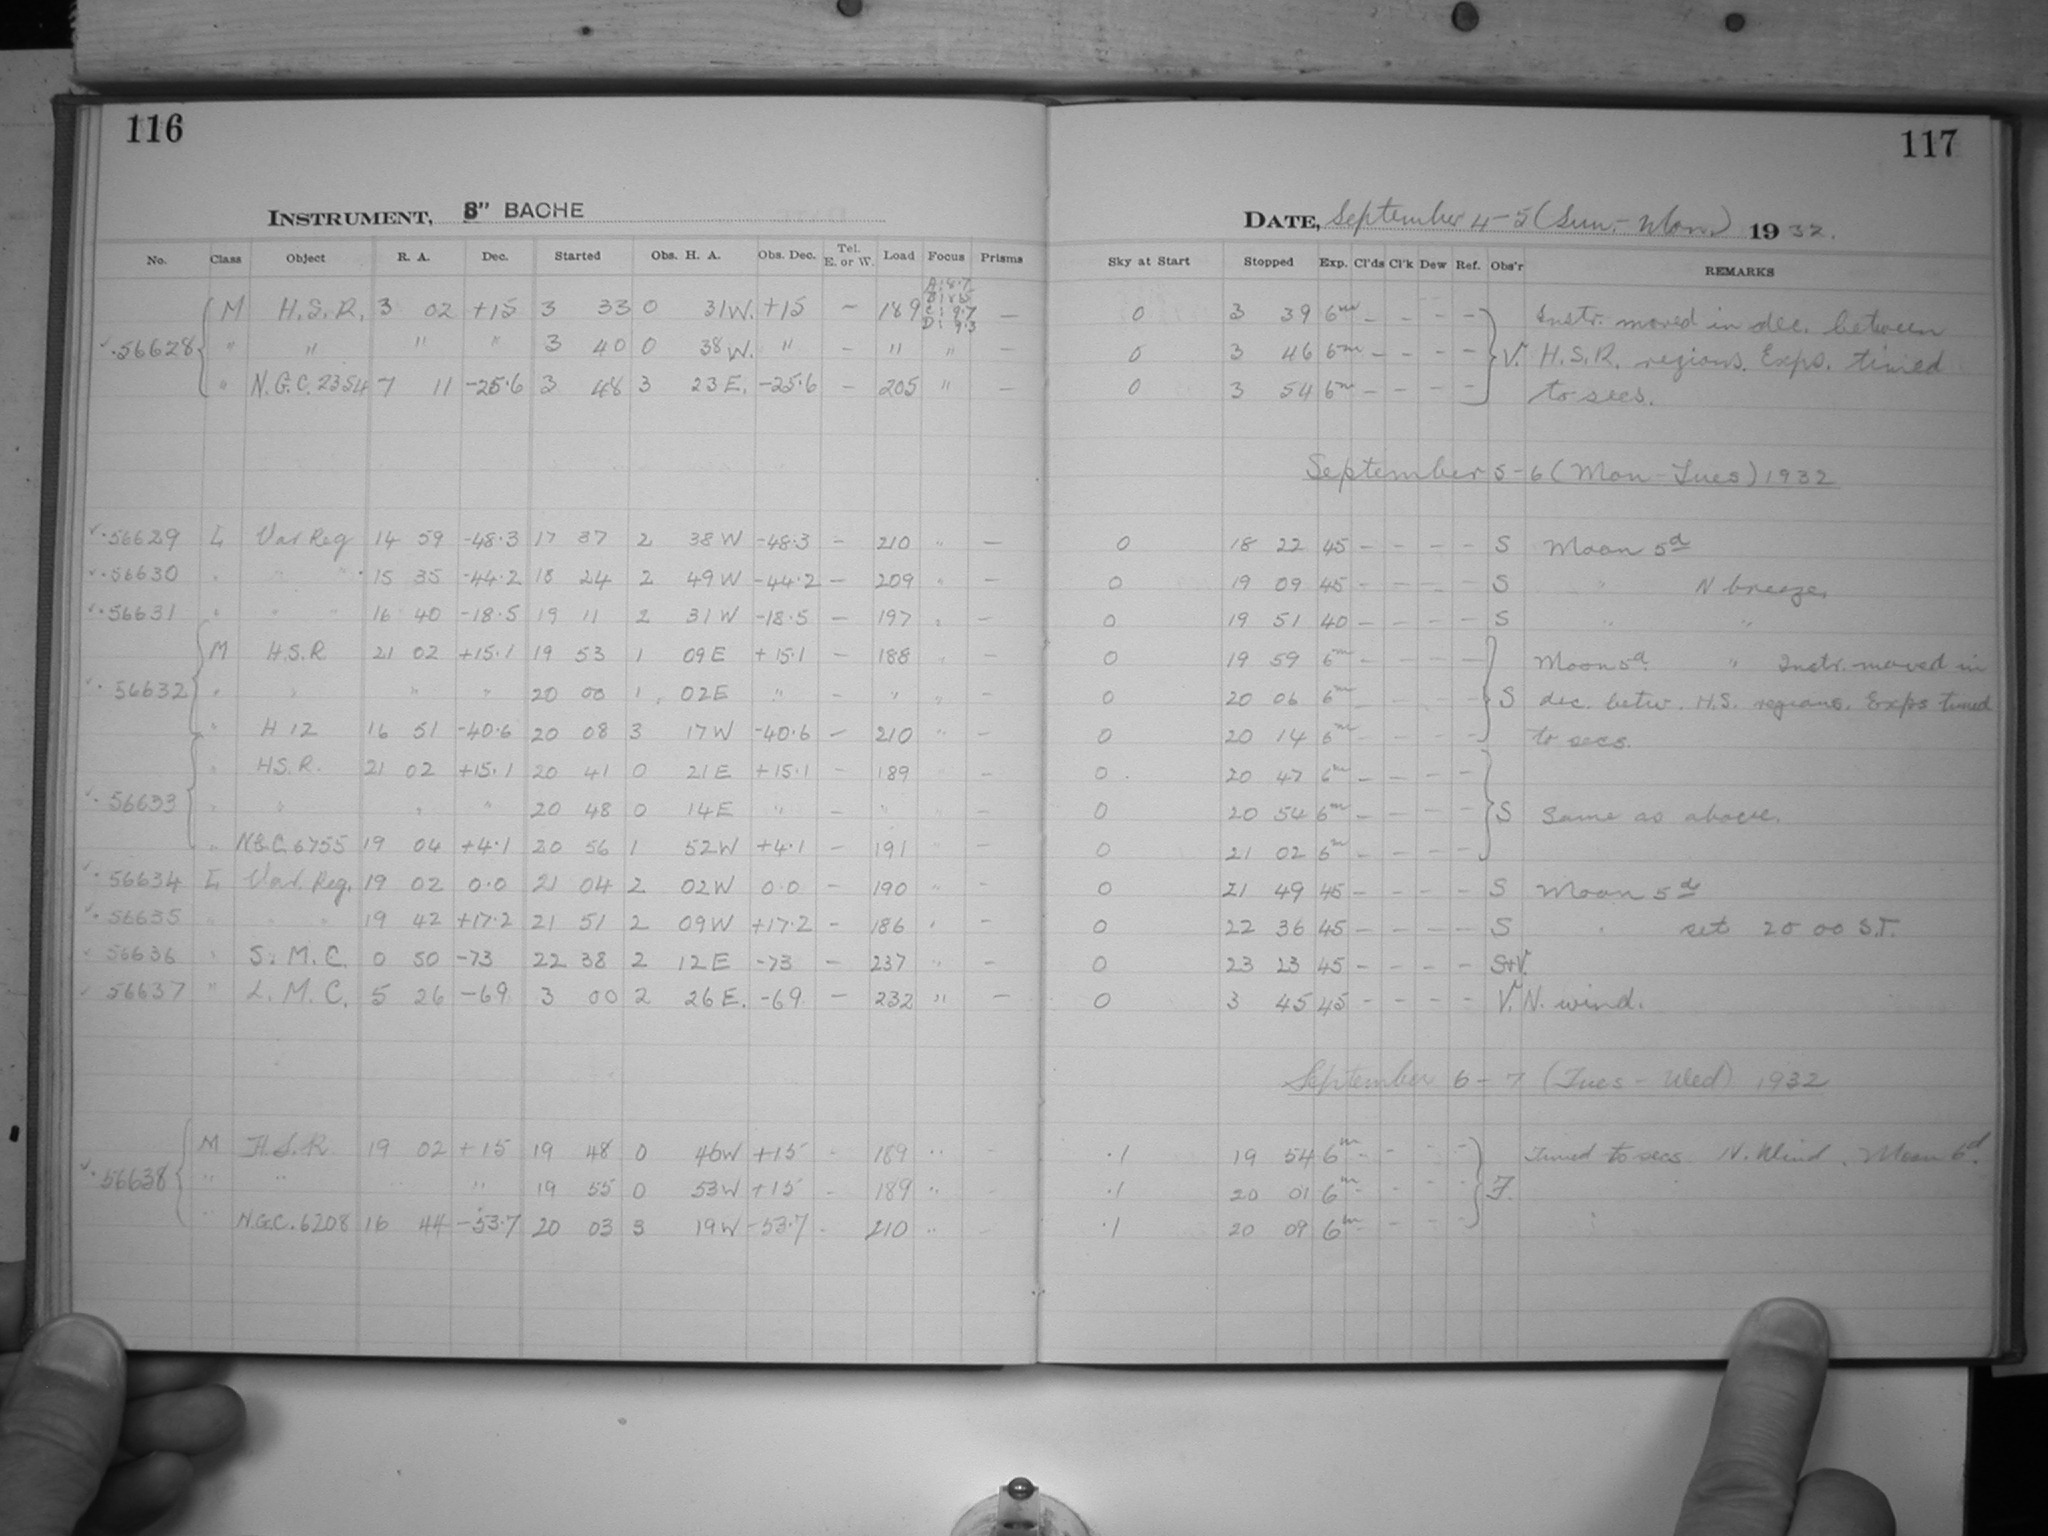 116
INSTRUMENT, 8" BACHE
No. Class Object R. A. Dec. Started Obs. H. A. Obs. Dec. Tel. E. or W. Load Focus Prisms
M H.S.R. 3 02 +15 3 33 0 31W. +15 – 189 –
56628 " " " " 3 40 0 38W. " – " " –
" N.G.C. 2354 7 11 -25.6 3 48 3 23 E. -25.6 – 205 " –
56629 L Var Reg 14 59 -48.3 17 37 2 38 W -48.3 – 210 " –
56630 " " " 15 35 -44.2 18 24 2 49 W -44.2 – 209 " –
56631 " " " 16 40 -18.5 19 11 2 31 W -18.5 – 197 " –
M H.S.R 21 02 +15.1 19 53 1 09 E +15.1 – 188 " –
56632 " " " " 20 00 1 02E " – " " –
" H 12 16 51 -40.6 20 08 3 17W -40.6 – 210 " –
" H.S.R. 21 02 +15.1 20 41 0 21 E +15.1 – 189 " –
56633 " " " " 20 48 0 14E " – " " –
" N.G.C. 6755 19 04 +4.1 20 56 1 52W +4.1 – 191 " –
56634 L Var. Reg. 19 02 0.0 21 04 2 02W 0.0 – 190 " –
56635 " " " 19 42 +17.2 21 51 2 09W +17.2 – 186 " –
56636 " S. M. C. 0 50 -73 22 38 2 12 E -73 – 237 " –
56637 " L. M. C. 5 26 -69 3 00 2 26 E. -69 – 232 " –
M H.S.R 19 02 +15 19 48 0 46W +15 – 189 " –
56638 " " " " 19 55 0 53W +15 – 189 " –
" N.G.C. 6208 16 44 -53.7 20 03 3 19W -53.7 – 210 " –
117
DATE, September 4-5 (Sun.-Mon.) 1932.
Sky at Start Stopped Exp. Cl'ds Cl'k Dew Ref. Obs'r REMARKS
0 3 39 6m – – – – Instr. moved in dec. between
0 3 46 6m – – – – V. H.S.R. regions. Exps. timed
0 3 54 6m – – – – to secs.
September 5-6 (Mon-Tues) 1932
0 18 22 45 – – – – S Moon 5d
0 19 09 45 – – – – S " N breeze.
0 19 51 40 – – – – S " "
0 19 59 6m – – – – Moon 5d. " Instr. moved in
0 20 06 6m – – – – S dec. betw. H.S. regions. Exps timed
0 20 14 6m – – – – to secs.
0 20 47 6m – – – –
0 20 54 6m – – – – S Same as above.
0 21 02 6m – – – –
0 21 49 45 – – – – S Moon 5d
0 22 36 45 – – – – S " set 20 00 S.T.
0 23 23 45 – – – – S+V.
0 3 45 45 – – – – V. N. wind.
September 6-7 (Tues-Wed) 1932
.1 19 54 6m – – – – Timed to secs N. Wind. Moon 6d.
.1 20 01 6m – – – – F.
.1 20 09 6m – – – –